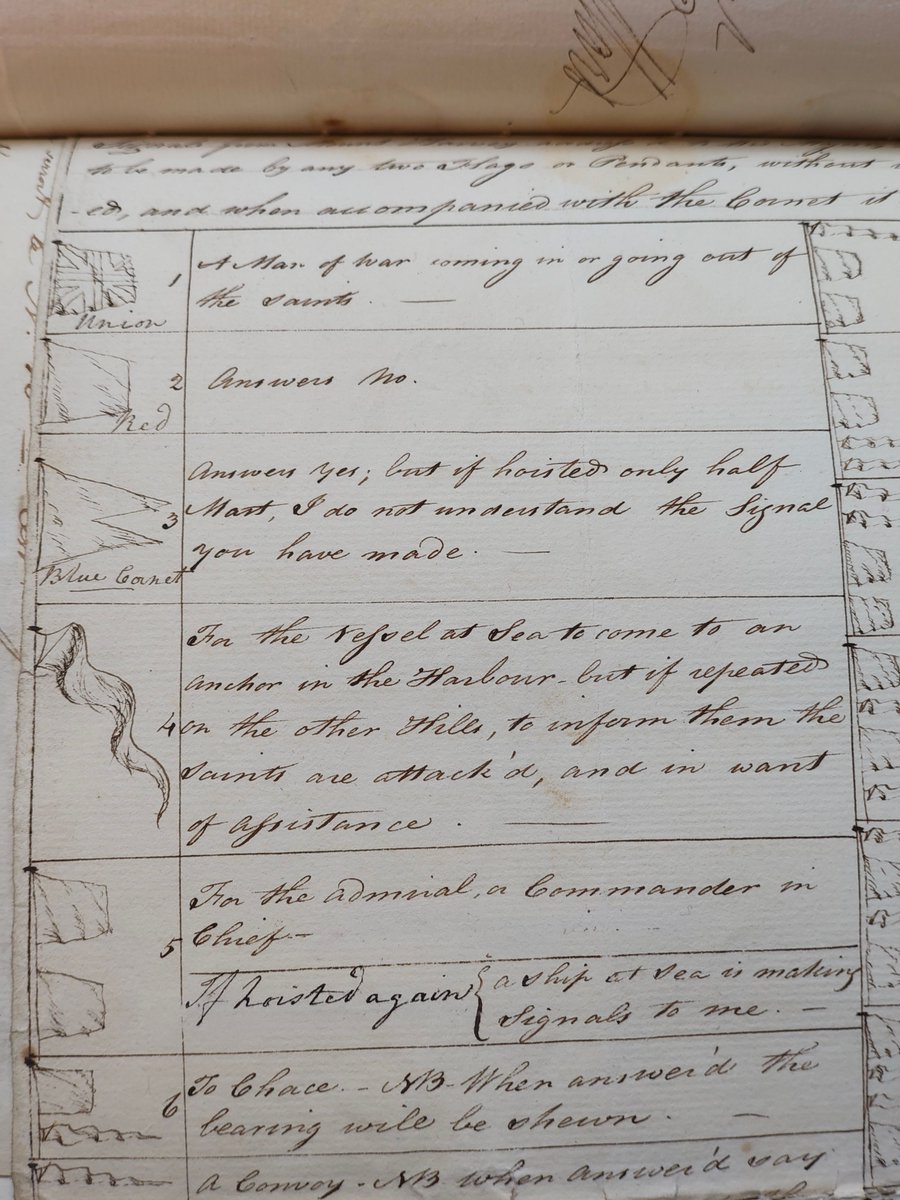 to be made by any two Flags or Pendants, without
-ed, and when accompanied with the Cornet it
Union
1
A Man of War coming in or going out of
the Saints. —
Red
2
Answers No.
Blue Cornet
3
Answers Yes; but if hoisted only half
Mast, I do not understand the Signal
you have made. —
4
For the Vessel at Sea to come to an
anchor in the Harbour - but if repeated
on the other Hills, to inform them the
Saints are attack'd, and in want
of assistance. —
5
For the Admiral, or Commander in
Chief —
If hoisted again { a ship at Sea is making
Signals to me. —
6
To Chace. - NB - When answer'd the
bearing will be shewn. —
A Convoy - NB when answer'd say